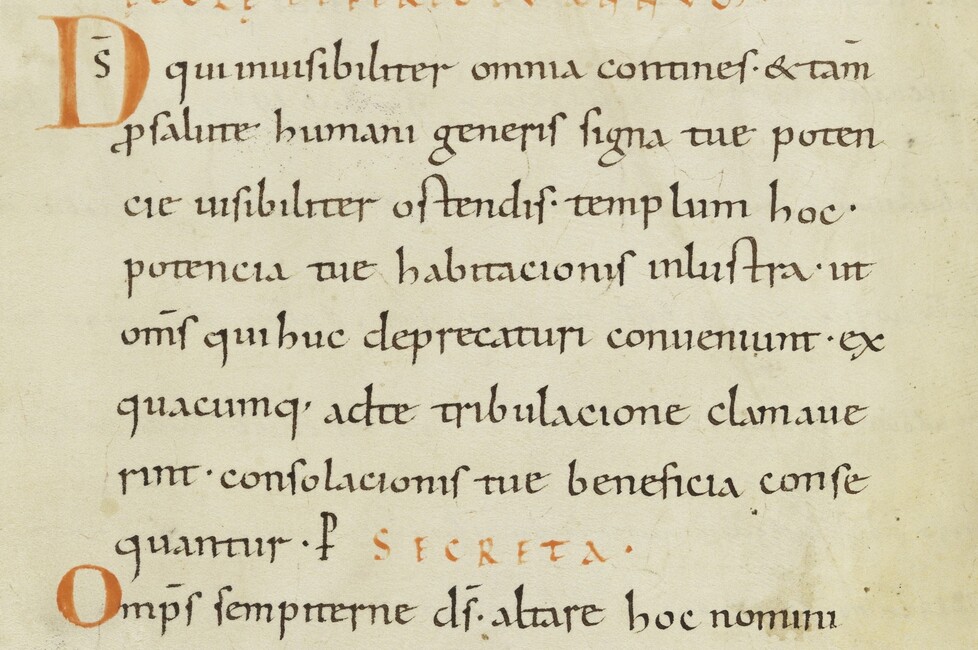 Ds̄ qui inuisibiliter omnia contines· & tam̄
ꝓsalute humani generis signa tue poten
cie uisibiliter ostendis· templum hoc·
potencia tue habitacionis inlustra· ut
om̄s qui huc deprecaturi conueniunt· ex
quacumq· adte tribulacione clamaue
rint· consolacionis tue beneficia conse
quantur· ꝑ SECRETA·
Omp̄s sempiterne ds̄· altare hoc nomini